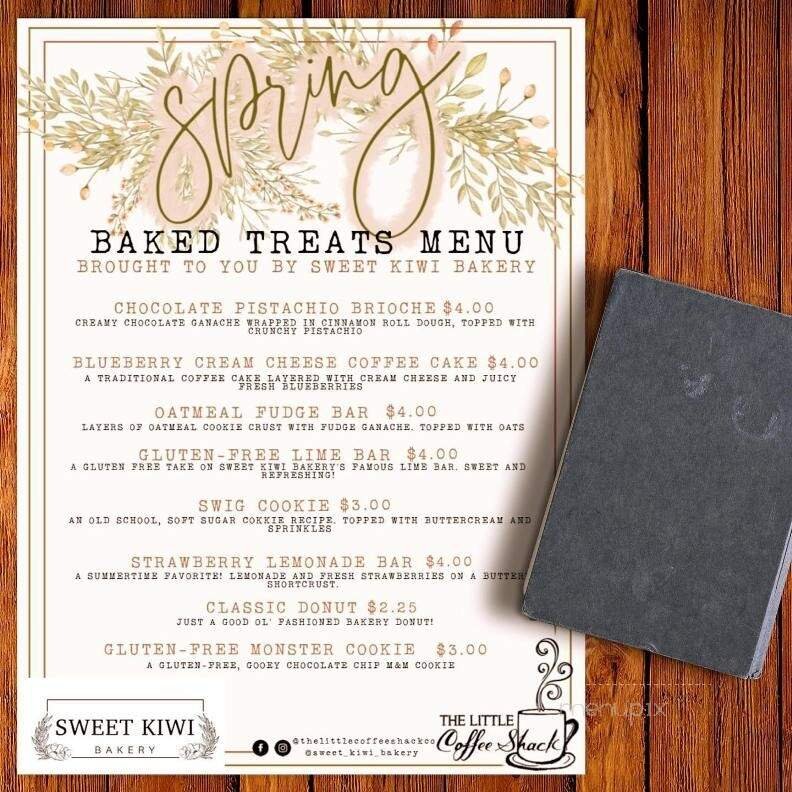 spring
BAKED TREATS MENU
BROUGHT TO YOU BY SWEET KIWI BAKERY
CHOCOLATE PISTACHIO BRIOCHE $4.00
CREAMY CHOCOLATE GANACHE WRAPPED IN CINNAMON ROLL DOUGH, TOPPED WITH
CRUNCHY PISTACHIO
BLUEBERRY CREAM CHEESE COFFEE CAKE $4.00
A TRADITIONAL COFFEE CAKE LAYERED WITH CREAM CHEESE AND JUICY
FRESH BLUEBERRIES
OATMEAL FUDGE BAR $4.00
LAYERS OF OATMEAL COOKIE CRUST WITH FUDGE GANACHE. TOPPED WITH OATS
GLUTEN-FREE LIME BAR $4.00
A GLUTEN FREE TAKE ON SWEET KIWI BAKERY'S FAMOUS LIME BAR. SWEET AND
REFRESHING!
SWIG COOKIE $3.00
AN OLD SCHOOL, SOFT SUGAR COKKIE RECIPE. TOPPED WITH BUTTERCREAM AND
SPRINKLES
STRAWBERRY LEMONADE BAR $4.00
A SUMMERTIME FAVORITE! LEMONADE AND FRESH STRAWBERRIES ON A BUTTER
SHORTCRUST.
CLASSIC DONUT $2.25
JUST A GOOD OL' FASHIONED BAKERY DONUT!
GLUTEN-FREE MONSTER COOKIE $3.00
A GLUTEN-FREE, GOOEY CHOCOLATE CHIP M&M COOKIE
SWEET KIWI
BAKERY
@thelittlecoffeeshackco
@sweet_kiwi_bakery
THE LITTLE
Coffee Shack
menupix